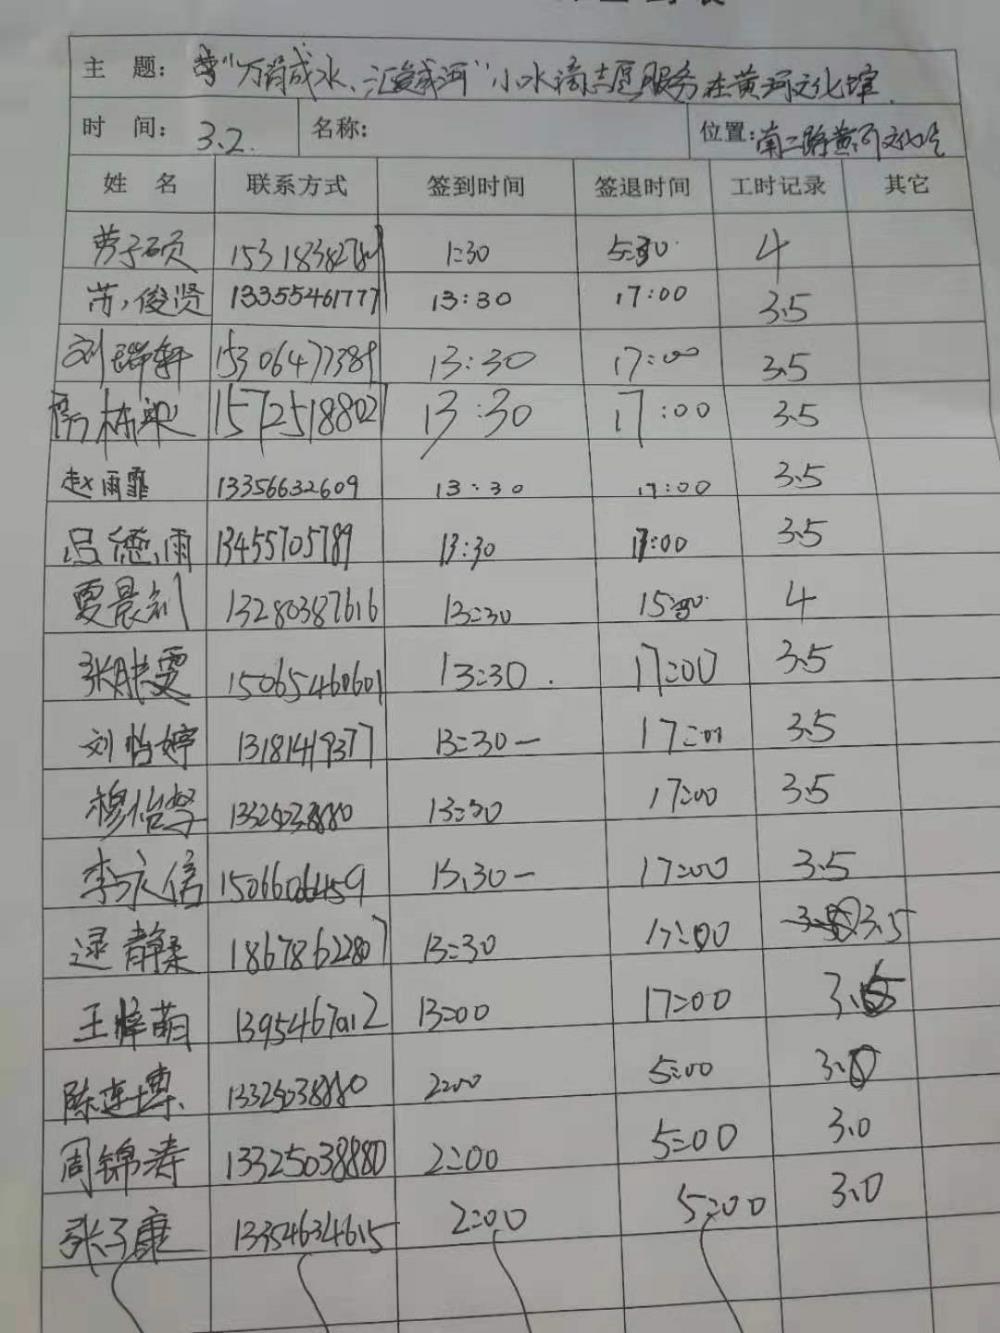 主 题: "万首成水、汇爱成河"小水滴志愿服务在黄河文化馆.
时 间: 3.2. 名称: 位置: 南二路黄河文化馆
姓 名 联系方式 签到时间 签退时间 工时记录 其它
劳子硕 1:30 5:30 4
俊贤 13355461777 13:30 17:00 3.5
刘瑞轩 15306477389 13:30 17:00 3.5
栋梁 15725188021 13:30 17:00 3.5
赵雨霏 13356632609 13:30 17:00 3.5
吕德雨 13455705789 13:30 17:00 3.5
夏晨钊 13280387616 13:30 4
张胜雯 15065460601 13:30 17:00 3.5
刘怡婷 13181419377 13:30— 17:00 3.5
穆怡 13:30 17:00 3.5
李永信 15066066459 13.30— 17:00 3.5
逯静柔 18678622807 13:30 17:00 3.5
王梓萌 13954467012 13:00 17:00
陈连博 13325038880 2:00 5:00 3.0
周锦涛 13325038880 2:00 5:00 3.0
张子康 13354634615 2:00 5:00 3.0